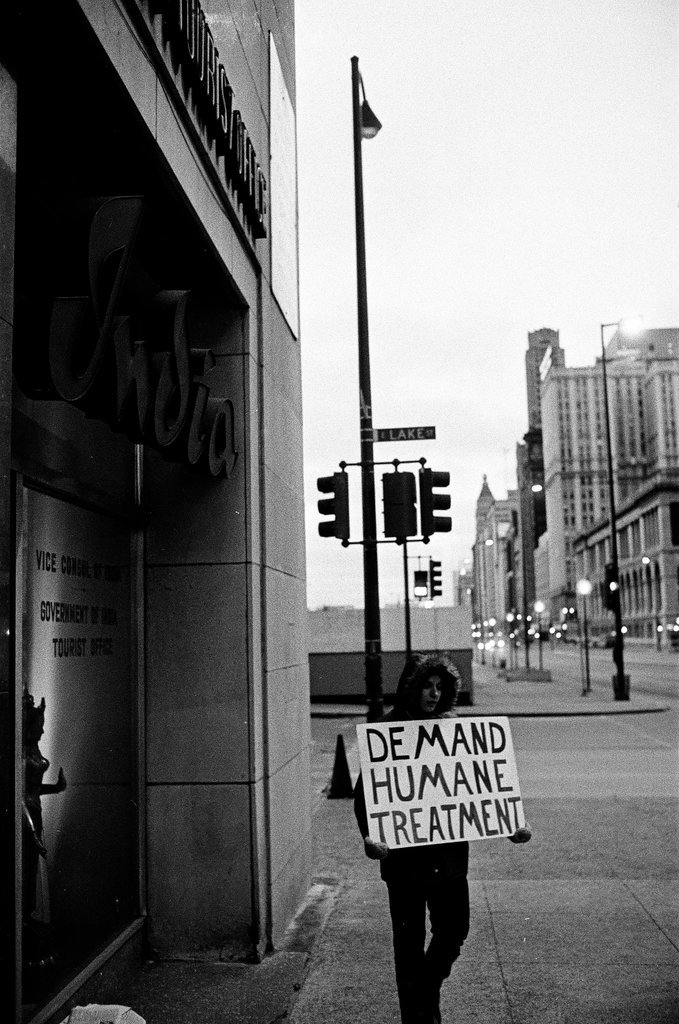 TOURIST OFFICE
India
E LAKE ST
VICE CONSUL OF INDIA
GOVERNMENT OF INDIA
TOURIST OFFICE
DEMAND
HUMANE
TREATMENT